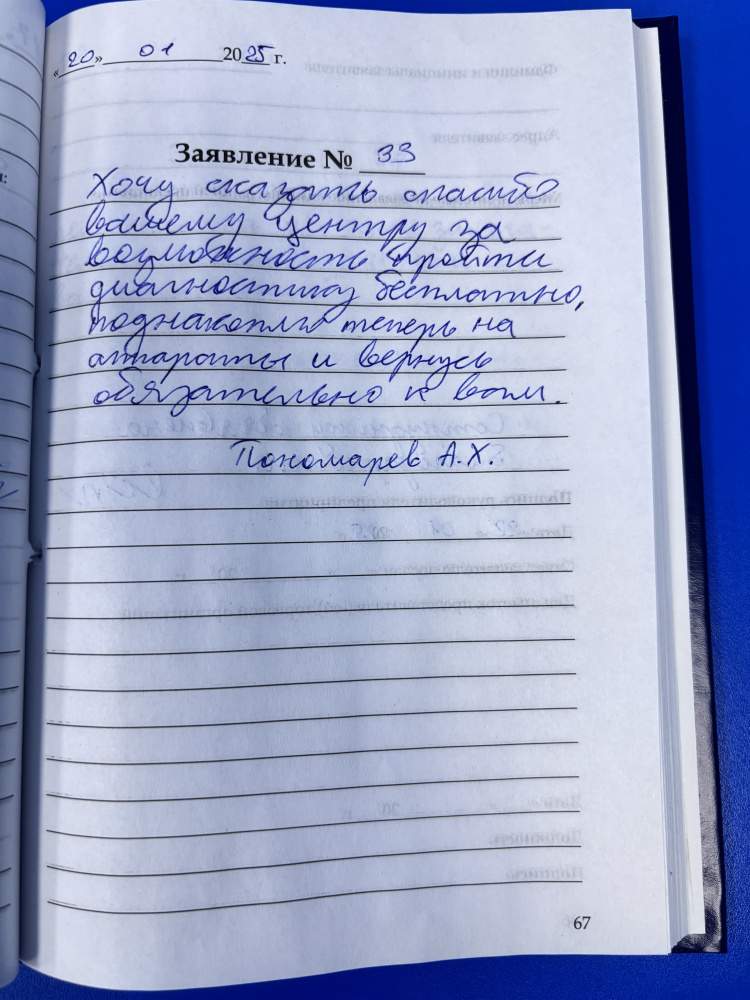 «20» 01 2025 г.
Заявление № 33
Хочу сказать спасибо
вашему центру за
возможность пройти
диагностику бесплатно,
поднакоплю теперь на
аппараты и вернусь
обязательно к вам.
Пономарев А.Х.
67